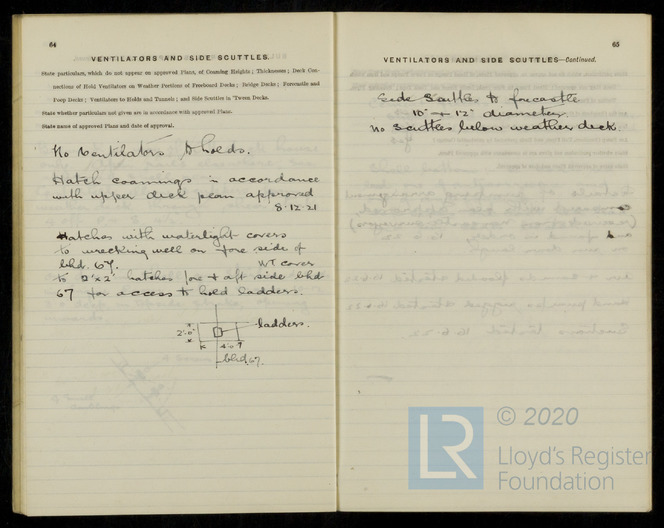 64
VENTILATORS AND SIDE SCUTTLES.
State particulars, which do not appear on approved Plans, of Coaming Heights; Thicknesses; Deck Con-
nections of Hold Ventilators on Weather Portions of Freeboard Decks; Bridge Decks; Forecastle and
Poop Decks; Ventilators to Holds and Tunnels; and Side Scuttles in 'Tween Decks.
State whether particulars not given are in accordance with approved Plans.
State name of approved Plans and date of approval.
No Ventilators to holds.
Hatch coamings in accordance
with upper deck plan approved
8.12.21
Hatches with watertight covers
to wrecking well on fore side of
bhd. 67. WT covers
to 2'x2' hatches fore & aft side bhd
67 for access to hold ladders.
2'-0"
ladders.
4'-0"
bhd. 67.
65
VENTILATORS AND SIDE SCUTTLES—Continued.
Side Scuttles to forcastle
10" + 12" diameter.
No Scuttles below weather deck.
LR
© 2020
Lloyd's Register
Foundation